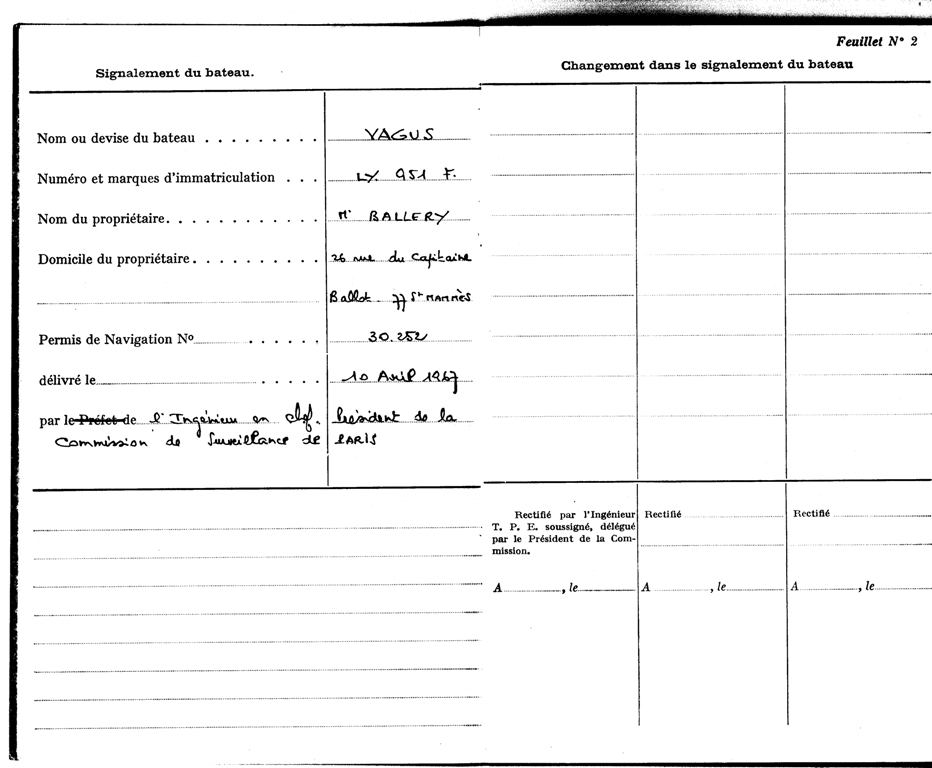 Signalement du bateau.
Nom ou devise du bateau . . . . . . . . . VAGUS
Numéro et marques d'immatriculation . . . LY. 951 F.
Nom du propriétaire. . . . . . . . . . . . Mr BALLERY
Domicile du propriétaire . . . . . . . . . . 26 rue du Capitaine
Ballot. 77 St MAMMÈS
Permis de Navigation No . . . . . . 30.252
délivré le . . . . . 10 Avril 1967
par le Préfet de l'Ingénieur en chef. Président de la
Commission de Surveillance de PARIS
Feuillet N° 2
Changement dans le signalement du bateau
Rectifié par l'Ingénieur
T. P. E. soussigné, délégué
par le Président de la Com-
mission.
A , le
Rectifié
A , le
Rectifié
A , le